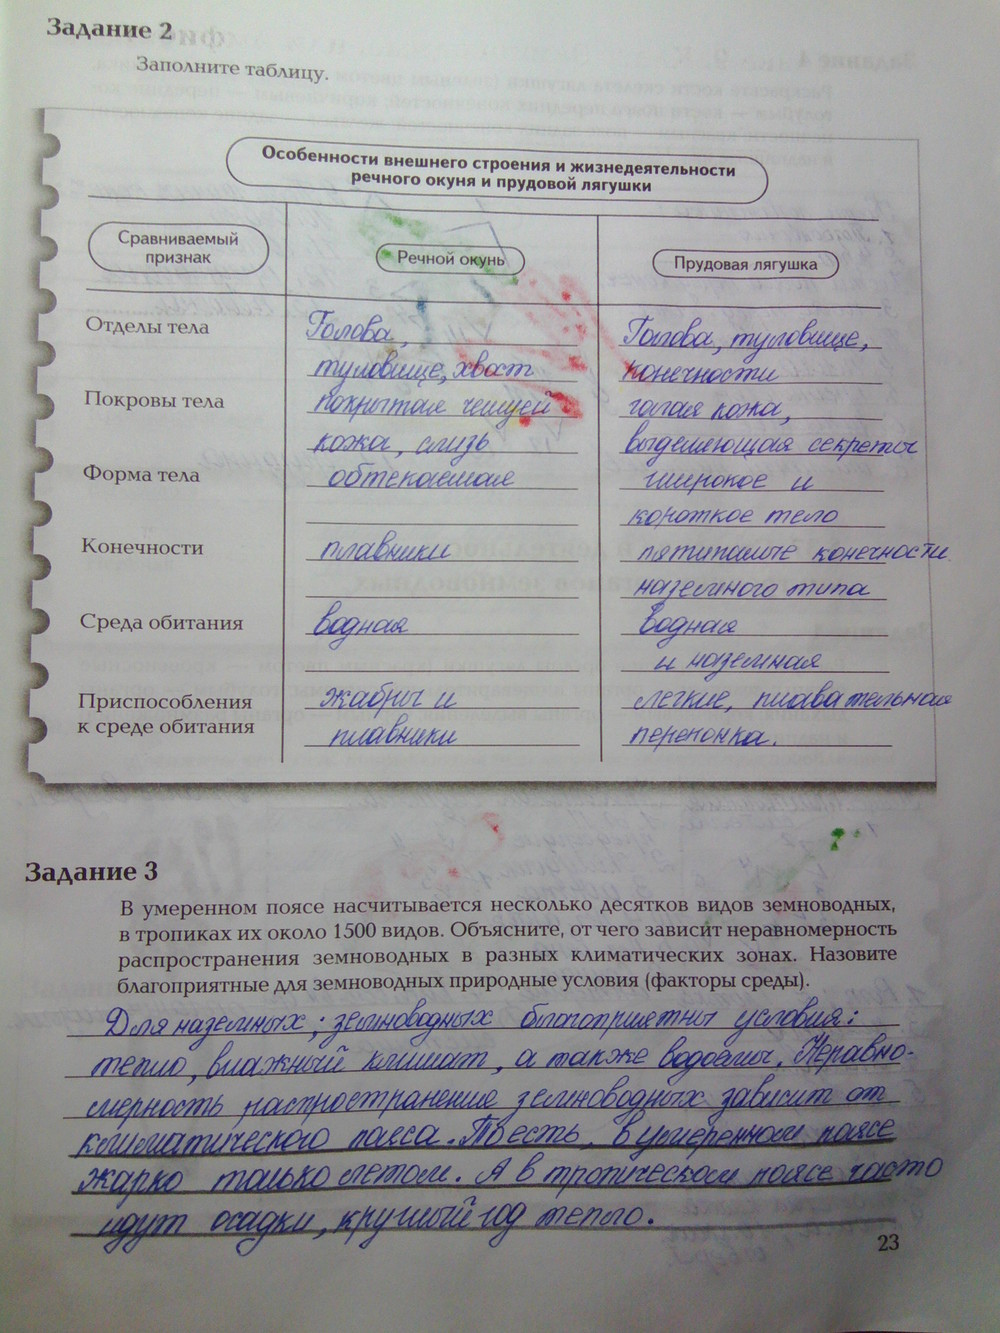 Задание 2
Заполните таблицу.
Особенности внешнего строения и жизнедеятельности
речного окуня и прудовой лягушки
Сравниваемый
признак
Речной окунь
Прудовая лягушка
Отделы тела
Голова,
туловище, хвост
Голова, туловище,
конечности
Покровы тела
покрытая чешуей
кожа, слизь
голая кожа,
выделяющая секреты
Форма тела
обтекаемая
широкое и
короткое тело
Конечности
плавники
пятипалые конечности
наземного типа
Среда обитания
водная
водная
и наземная
Приспособления
к среде обитания
жабры и
плавники
легкие, плавательная
перепонка.
Задание 3
В умеренном поясе насчитывается несколько десятков видов земноводных,
в тропиках их около 1500 видов. Объясните, от чего зависит неравномерность
распространения земноводных в разных климатических зонах. Назовите
благоприятные для земноводных природные условия (факторы среды).
Для наземных; земноводных благоприятны условия:
тепло, влажный климат, а также водоемы. Неравно-
мерность распространение земноводных зависит от
климатического пояса. То есть, в умеренном поясе
жарко только летом. А в тропическом поясе часто
идут осадки, круглый год тепло.
23